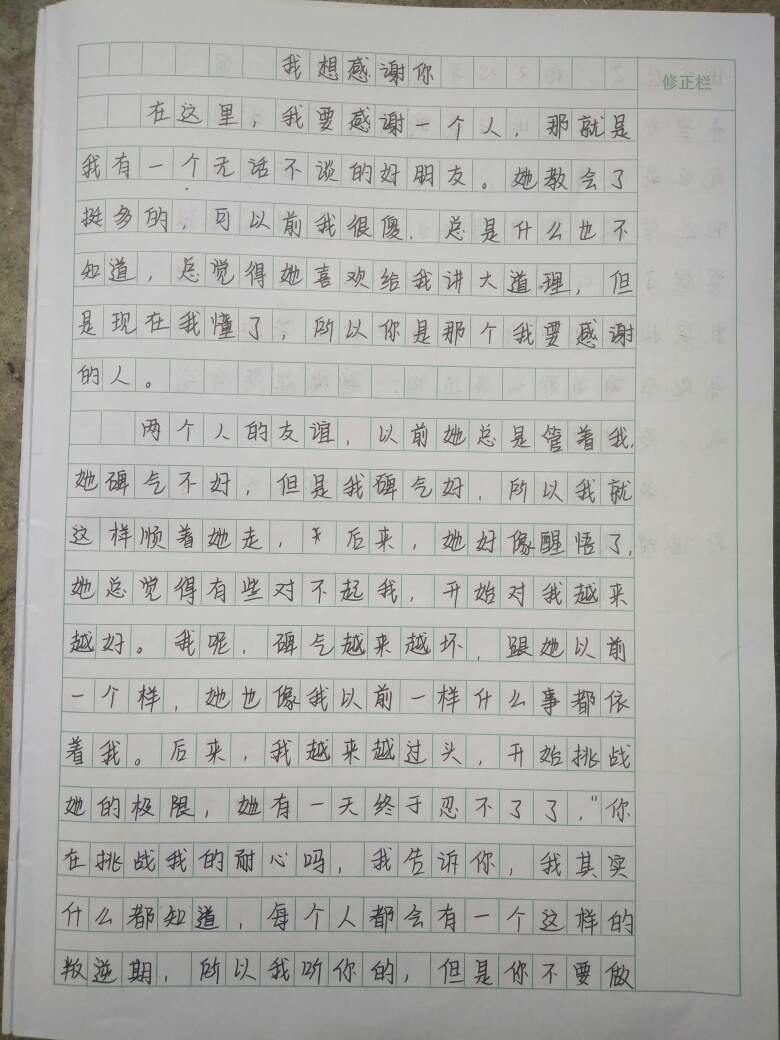 我想感谢你
修正栏
在这里，我要感谢一个人，那就是
我有一个无话不谈的好朋友。她教会了
挺多的，可以前我很傻，总是什么也不
知道，总觉得她喜欢给我讲大道理，但
是现在我懂了，所以你是那个我要感谢
的人。
两个人的友谊，以前她总是管着我，
她碑气不好，但是我碑气好，所以我就
这样顺着她走，后来，她好像醒悟了，
她总觉得有些对不起我，开始对我越来
越好。我呢，碑气越来越坏，跟她以前
一个样，她也像我以前一样什么事都依
着我。后来，我越来越过头，开始挑战
她的极限，她有一天终于忍不了了，“你
在挑战我的耐心吗，我告诉你，我其实
什么都知道，每个人都会有一个这样的
叛逆期，所以我听你的，但是你不要做